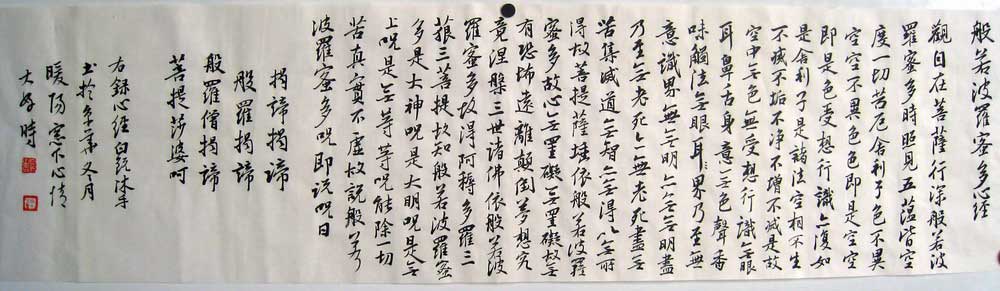 般若波羅蜜多心經
觀自在菩薩行深般若波
羅蜜多時照見五蘊皆空
度一切苦厄舍利子色不異
空空不異色色即是空空
即是色受想行識亦復如
是舍利子是諸法空相不生
不滅不垢不净不增不減是故
空中無色無受想行識無眼
耳鼻舌身意無色聲香
味觸法無眼耳界乃至無
意識界無無明亦無無明盡
乃至無老死亦無老死盡無
苦集滅道無智亦無得以無所
得故菩提薩埵依般若波羅
蜜多故心無罣礙無罣礙故無
有恐怖遠離顛倒夢想究
竟涅槃三世諸佛依般若波
羅蜜多故得阿耨多羅三
藐三菩提故知般若波羅蜜
多是大神呪是大明呪是無
上呪是無等等呪能除一切
苦真實不虛故說般若
波羅蜜多呪即說呪曰
揭諦揭諦
般羅揭諦
般羅僧揭諦
菩提莎婆呵
右録心經白沐手
书於冬月
暖陽窓下心情
大好時